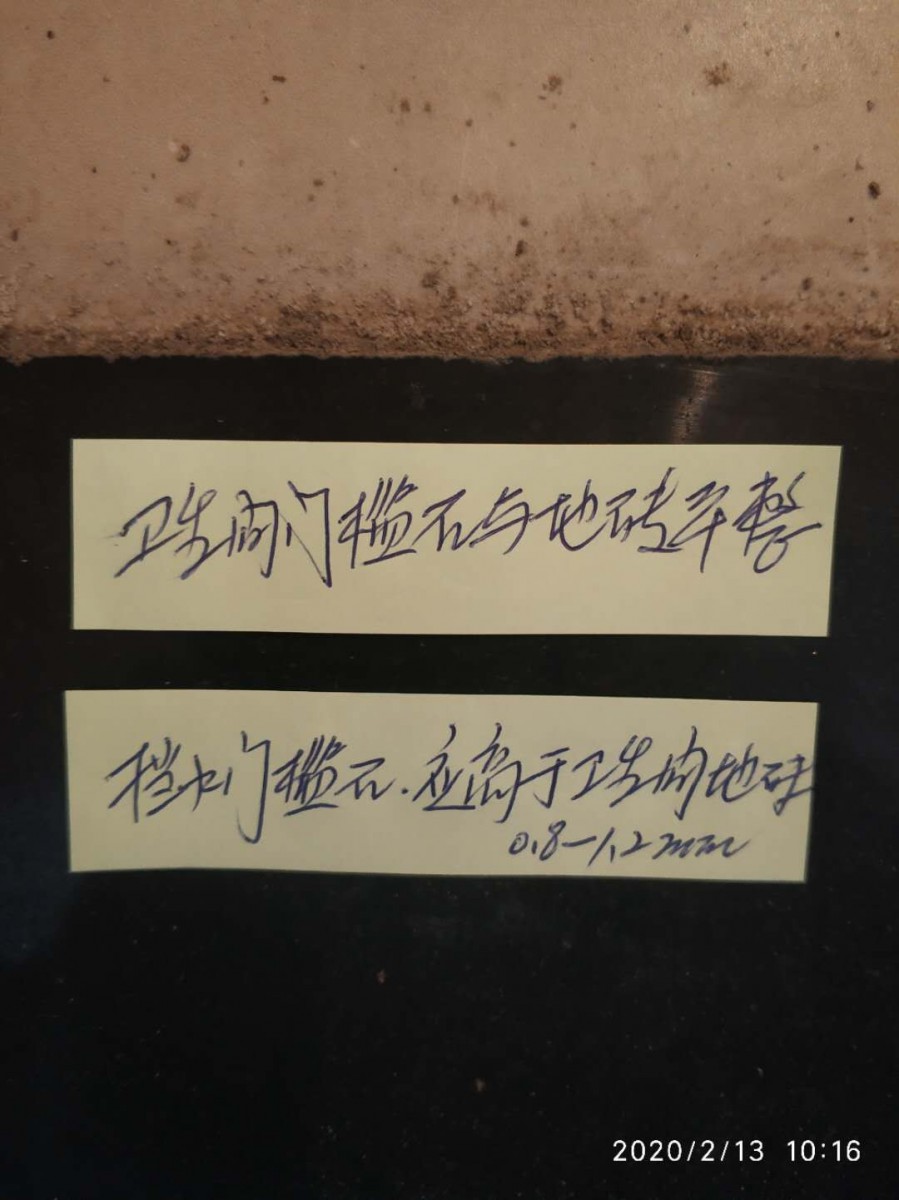 卫生间门槛石与地砖平整
档水门槛石.应高于卫生间地砖
0.8-1.2mm
2020/2/13 10:16